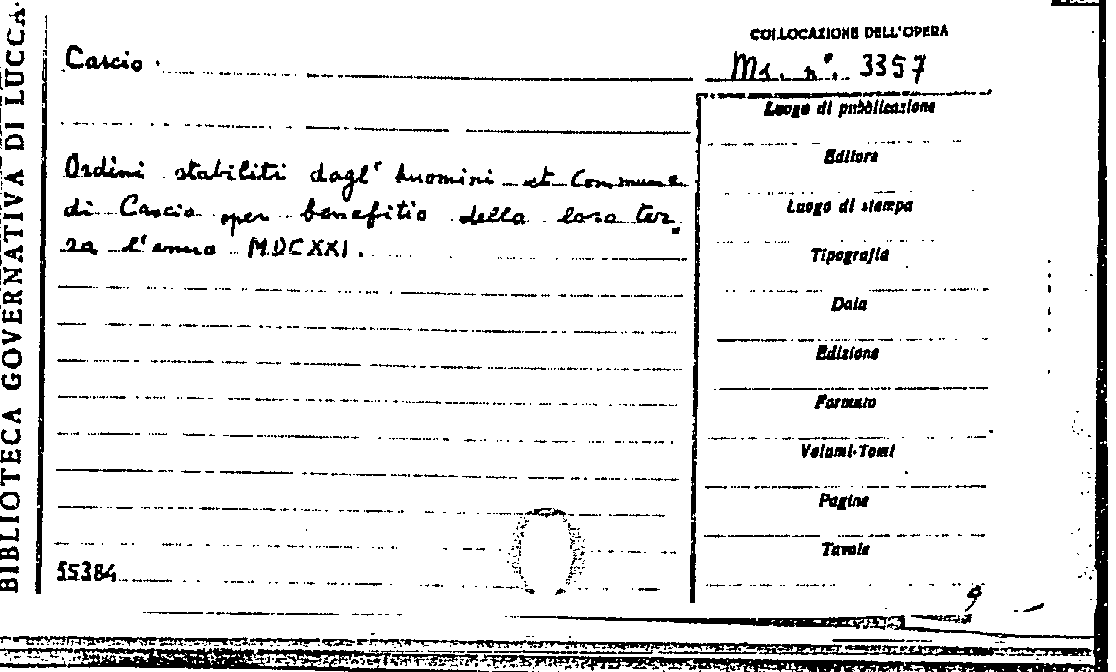 BIBLIOTECA GOVERNATIVA DI LUCCA
Cascio.
Ordini stabiliti dagl' huomini et Commune
di Cascio per benefitio della loro ter
ra l'anno MDCXXI.
55384
COLLOCAZIONE DELL'OPERA
Ms. n°. 3357
Luogo di pubblicazione
Editore
Luogo di stampa
Tipografia
Data
Edizione
Formato
Volumi-Tomi
Pagine
Tavole